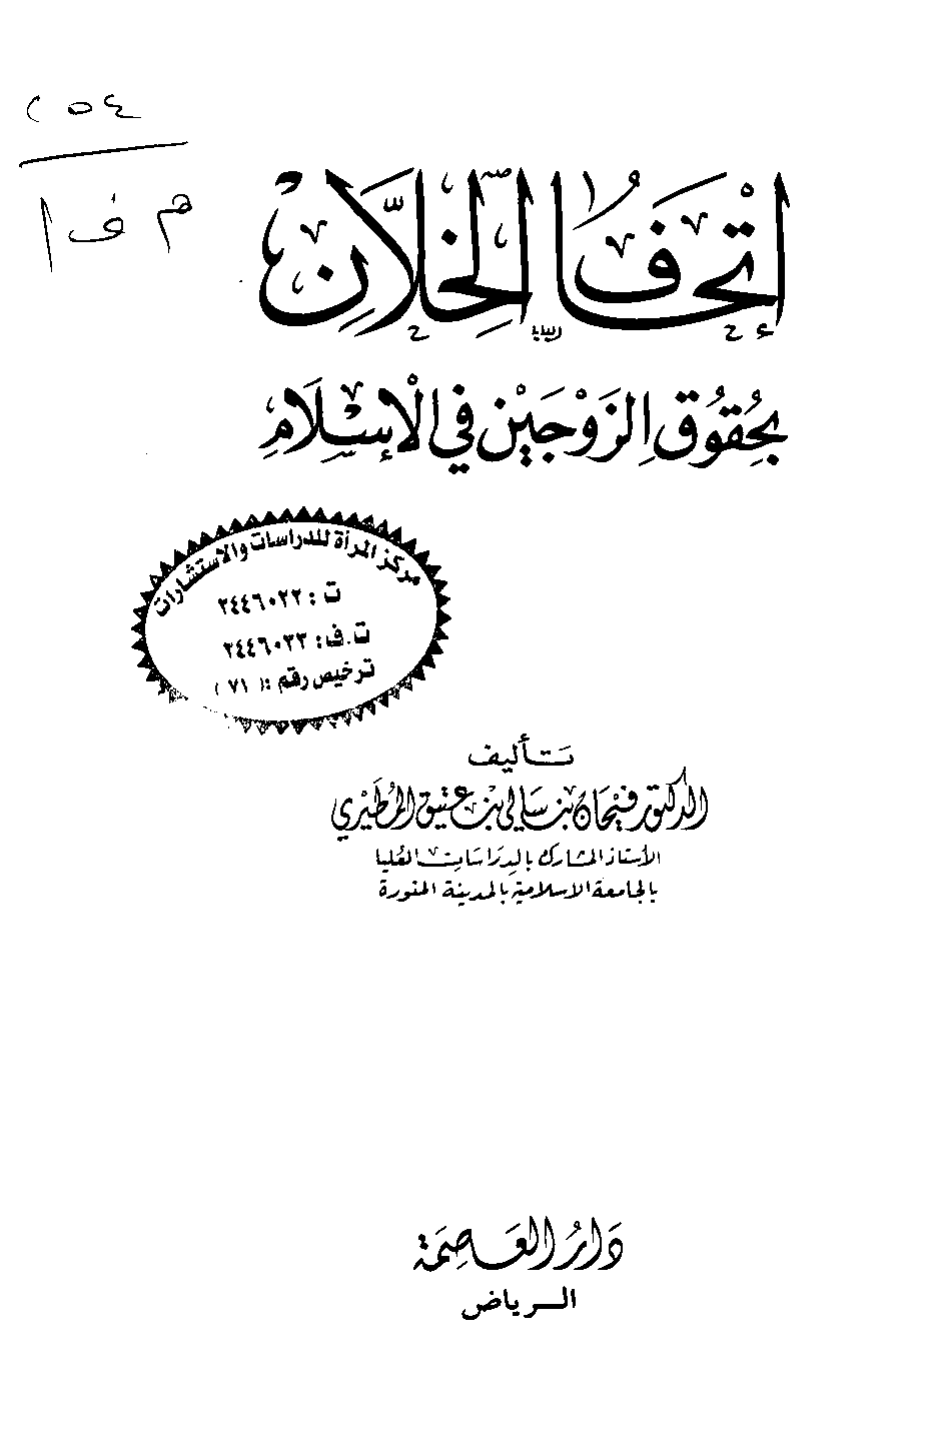 ٢٥٤
م ف ا
إِتْحَافُ الخِلَّانِ
بِحُقُوقِ الزَوْجَيْنِ فِي الْإِسْلَامِ
مركز المرأة للدراسات والاستشارات
ت : ٢٤٤٦٠٢٢
ت.ف: ٢٤٤٦٠٢٣
ترخيص رقم : ( ٧١ )
تأليف
الدكتور فيحان بن سالي بن عتيق المطيري
الأستاذ المشارك بالدراسات العليا
بالجامعة الاسلامية بالمدينة المنورة
دَارُ العَاصِمَة
الرياض